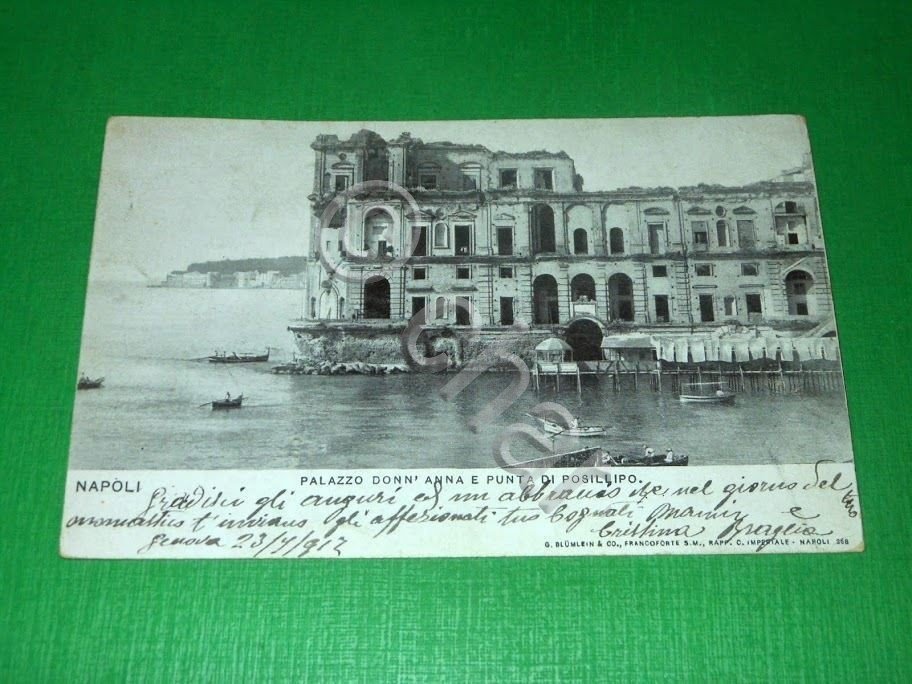 NAPOLI
PALAZZO DONN' ANNA E PUNTA DI POSILLIPO.
Gradisci gli auguri ed un abbraccio che nel giorno del tuo
onomastico t'inviano gli affezionati tuoi Cognati Mario e
Cristina Braglia
Genova 23/7/912
G. BLÜMLEIN & CO., FRANCOFORTE S.M., RAPP. C. IMPERIALE - NAPOLI 268